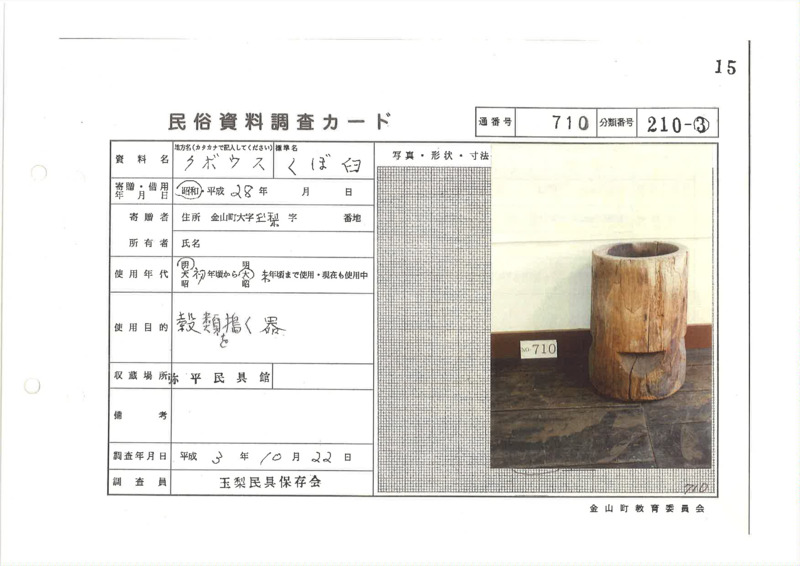 15
民俗資料調査カード
通番号 710 分類番号 210-③
資料名 地方名(カタカナで記入してください) クボウス 標準名 くぼ臼
写真・形状・寸法
寄贈・借用年月日 昭和・平成 28年 月 日
寄贈者 住所 金山町大字玉梨字 番地
所有者 氏名
使用年代 明大昭 初年頃から 明大昭 末年頃まで使用・現在も使用中
使用目的 穀類を搗く器
収蔵場所 弥平民具館
備考
調査年月日 平成 3年 10月 22日
調査員 玉梨民具保存会
NO. 710
710
金山町教育委員会